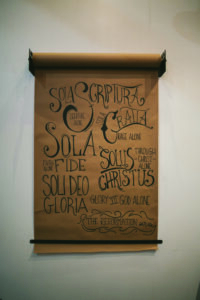 SOLA SCRIPTURA
SCRIPTURE ALONE
SOLA GRATIA
GRACE ALONE
SOLA FIDE
FAITH ALONE
SOLUS CHRISTUS
THROUGH CHRIST ALONE
SOLI DEO GLORIA
GLORY TO GOD ALONE
THE REFORMATION